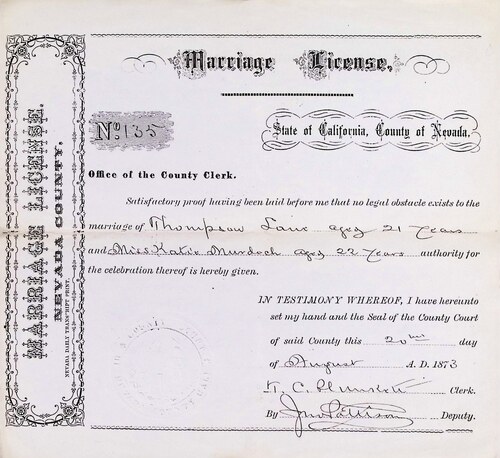 MARRIAGE LICENSE.
NEVADA COUNTY.
NEVADA DAILY TRANSCRIPT PRINT.
Marriage License.
No. 135
State of California, County of Nevada.
Office of the County Clerk.
Satisfactory proof having been laid before me that no legal obstacle exists to the
marriage of Thompson Lane aged 21 Years
and Miss Katie Murdoch aged 22 Years authority for
the celebration thereof is hereby given.
IN TESTIMONY WHEREOF, I have hereunto
set my hand and the Seal of the County Court
of said County this 20th day
of August A. D. 1873
Clerk.
By Jno Pattison Deputy.